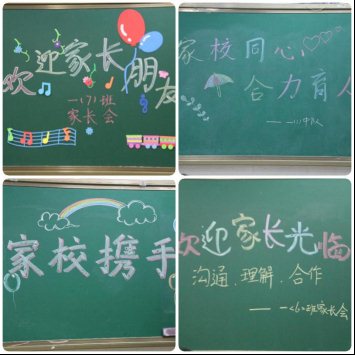 欢迎家长朋友
一(7)班
家长会
家校同心
合力育人
——一(1)中队
家校携手
欢迎家长光临
沟通、理解、合作
——一<6>班家长会